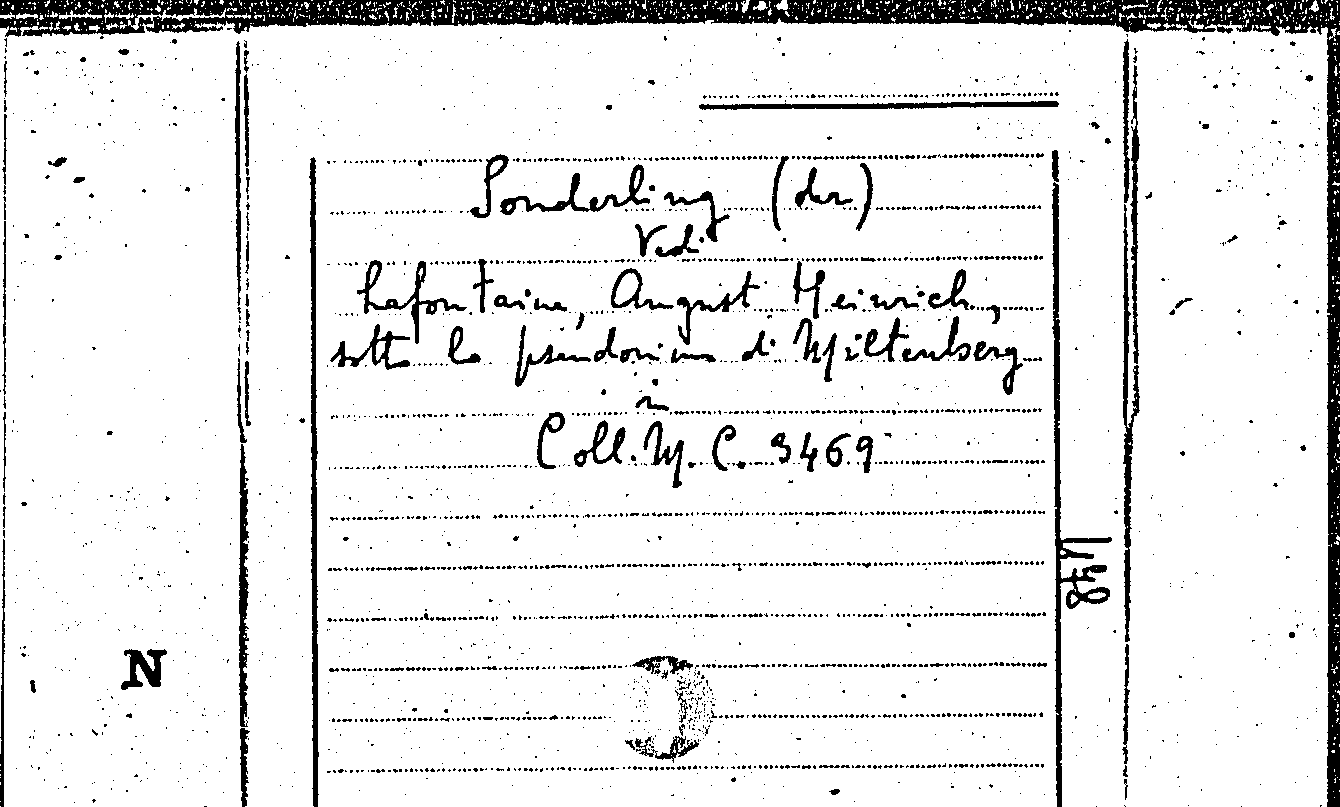 Sonderling (der)
Vedi
Lafontaine, August Heinrich,
sotto lo pseudonimo di Miltenberg
in
Coll. M. C. 3469
N